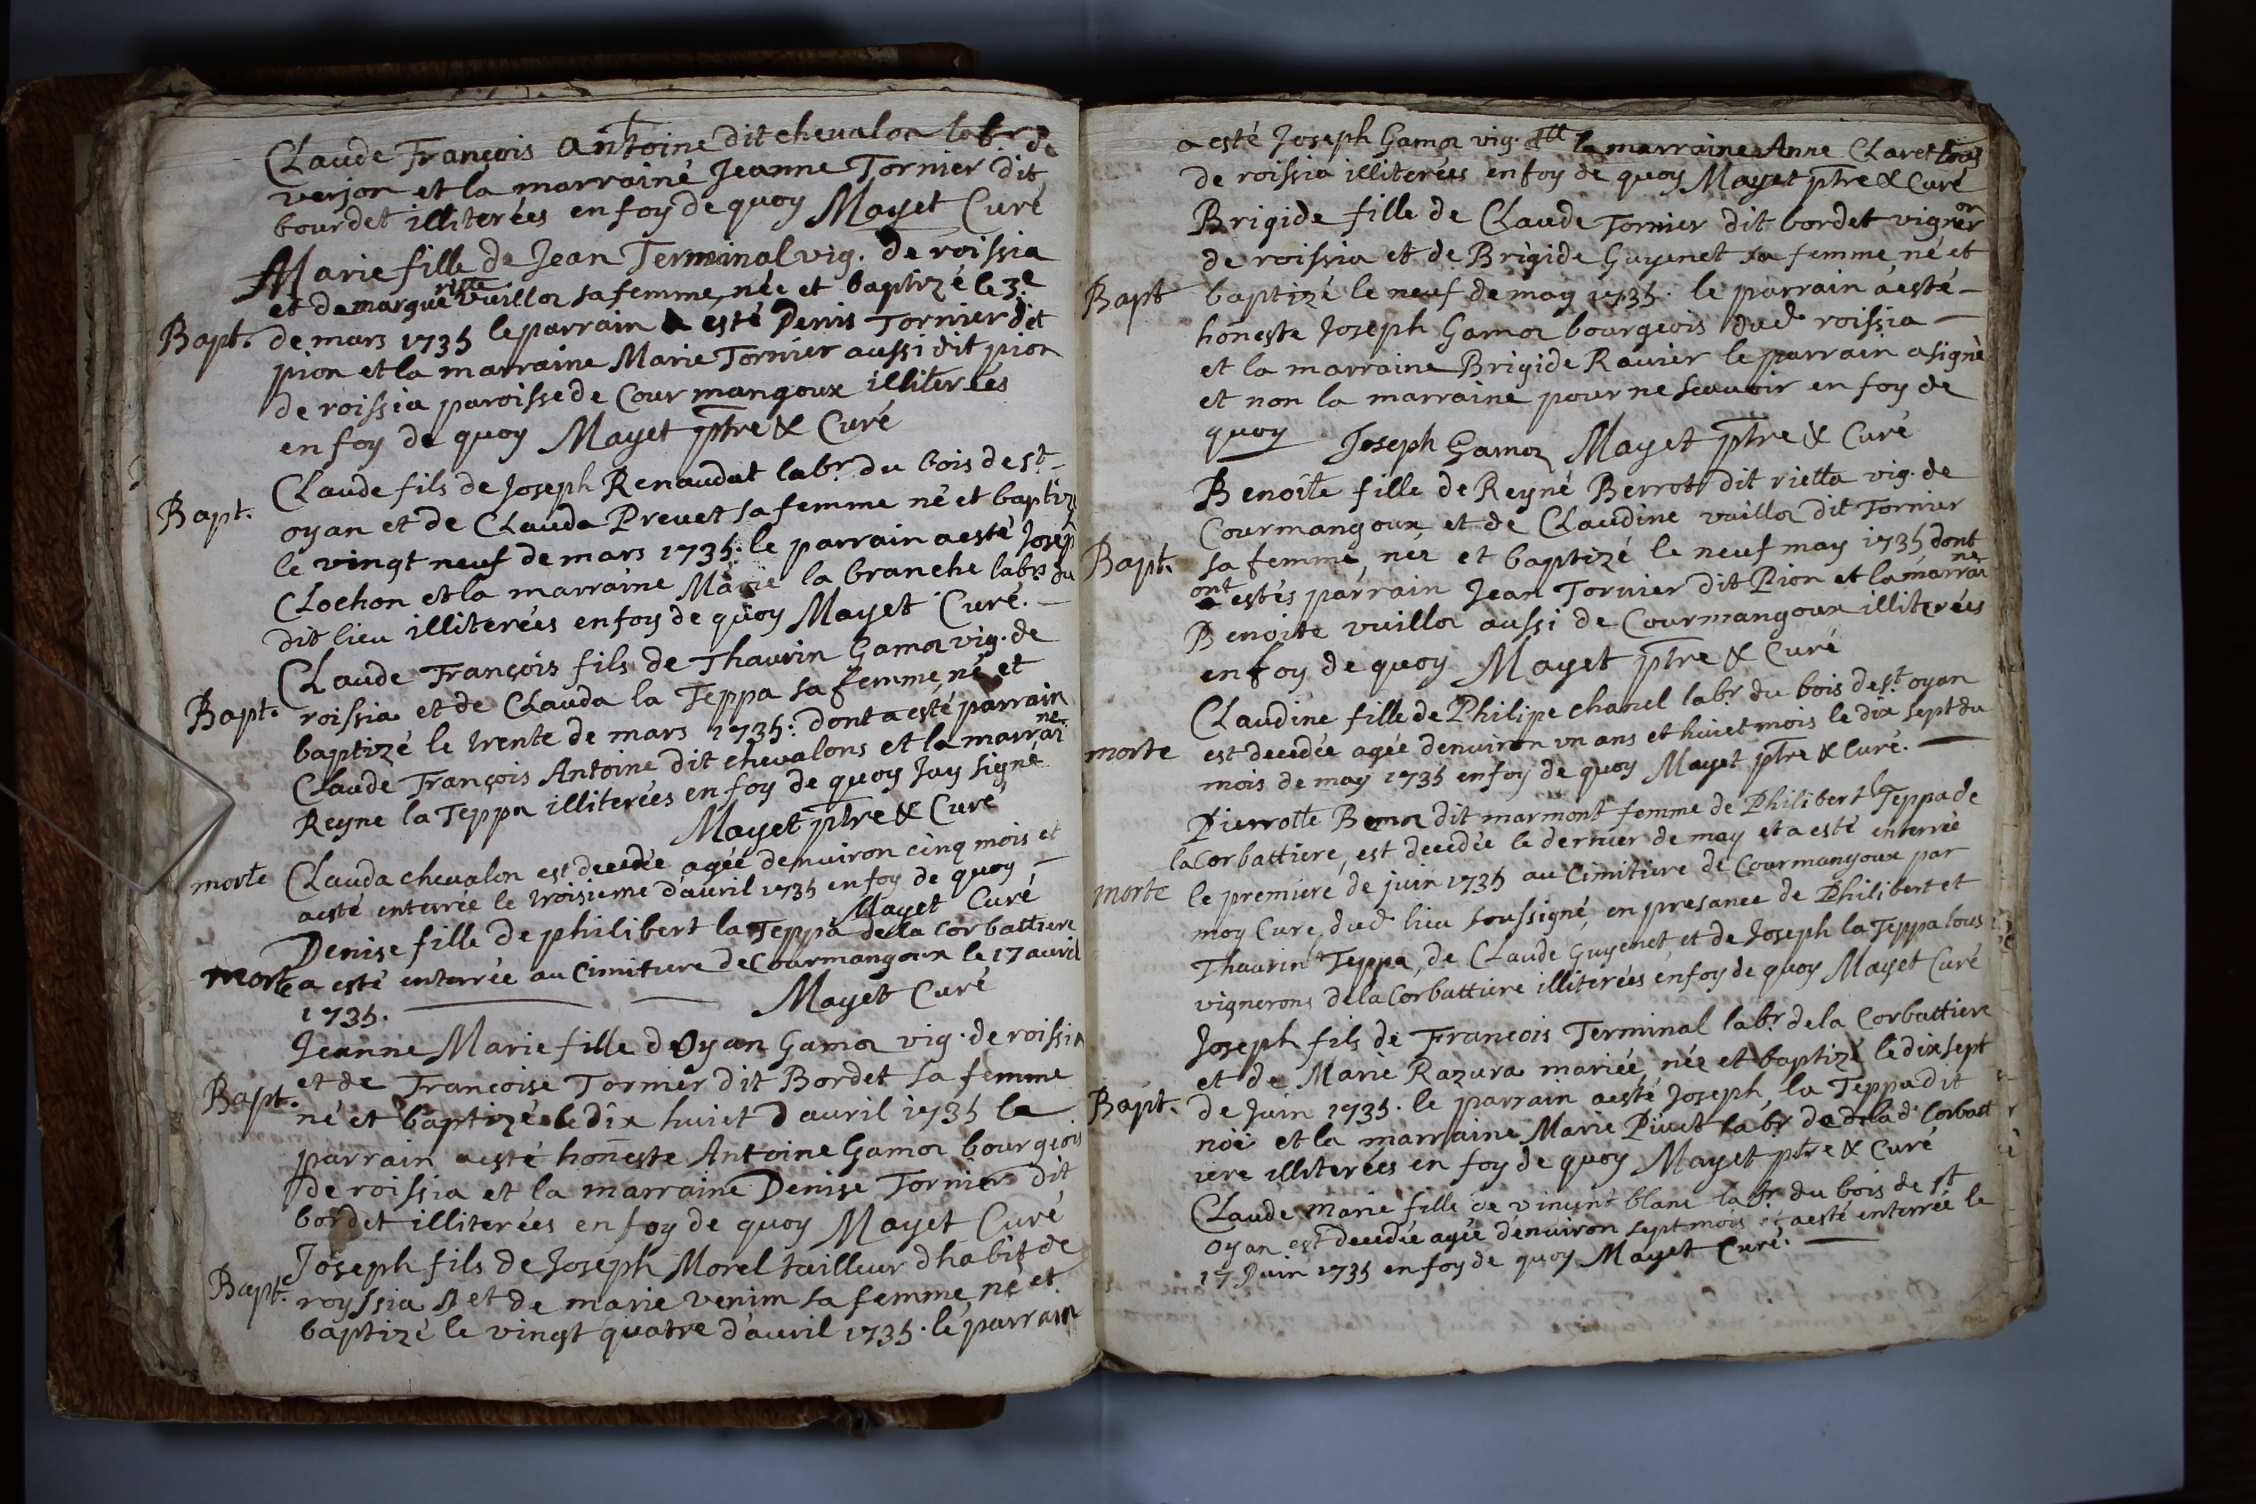 Claude François Antoine dit chevalon labr. de
verjon et la marrainé Jeanne Tornier dit
bourdet illiterées en foy de quoy Mayet Curé
Marie fille de Jean Terminal vig. de roissia
et de margueritte vuillon sa femme, née et baptizé le 3e
Bapt. de mars 1735 le parrain a esté Denis Tornier dit
pion et la marraine Marie Tornier aussi dit pion
de roissia paroisse de Courmangoux illiterées
en foy de quoy Mayet ptre & Curé
Claude fils de Joseph Renaudat labr. du bois de st
Bapt. oyan et de Clauda Prevet sa femme né et baptizé
le vingt neuf de mars 1735. le parrain a esté Joseph
Clochon et la marraine Marie la branche labrs du
dit lieu illiterées en foy de quoy Mayet Curé.
Claude François fils de Thaurin Gamon vig. de
Bapt. roissia et de Clauda la Teppa sa femme, né et
baptizé le trente de mars 1735: dont a esté parrain
Claude François Antoine dit chevalons et la marraine
Reyne la Teppa illiterées en foy de quoy Jay signé
Mayet ptre & Curé
morte Clauda chevalon est decedée agée denviron cinq mois et
a esté enterrée le troisieme d'avril 1735 en foy de quoy
Mayet Curé
Denise fille de philibert la Teppa de la Corbattiere
morte a esté enterrée au Cimitiere de Courmangoux le 17 avril
1735. Mayet Curé
Jeanne Marie fille d'Oyan Gamon vig. de roissia
et de Françoise Tornier dit Bordet sa femme
Bapt. né et baptizé le dix huict d'avril 1735 le
parrain a esté honneste Antoine Gamon bourgeois
de roissia et la marraine Denise Tornier dit
bordet illiterées en foy de quoy Mayet Curé
Joseph fils de Joseph Morel tailleur d'habit de
Bapt. royssia et de marie venim sa femme, né et
baptizé le vingt quatre d'avril 1735. le parrain
a esté Joseph Gamon vig. la marraine Anne Claret tous
de roissia illiterées en foy de quoy Mayet ptre & Curé
Brigide fille de Claude Tornier dit bordet vigneron
de roissia et de Brigide Guyenet sa femme né et
Bapt baptizé le neuf de may 1735. le parrain a esté
honeste Joseph Gamon bourgeois dud. roissia
et la marraine Brigide Ravier le parrain a signé
et non la marraine pour ne scavoir en foy de
quoy Joseph Gamon Mayet ptre & Curé
Benoîte fille de Reyné Berrot dit rietta vig. de
Courmangoux et de Claudine vuillon dit Tornier
Bapt. sa femme, née et baptizé le neuf may 1735 dont
ont estés parrain Jean Tornier dit Pion et la marraine
Benoite vuillon aussi de Courmangoux illiterées
en foy de quoy Mayet ptre & Curé
Claudine fille de Philipe chanel labr. du bois de st oyan
morte est decedée agée denviron un ans et huict mois le dix sept du
mois de may 1735 en foy de quoy Mayet ptre & Curé.
Pierrotte dit marmont femme de Philibert la Teppa de
la Corbattiere, est decedée le dernier de may et a esté enterrée
morte le premiere de juin 1735 au Cimitiere de Courmangoux par
moy Curé dud. lieu soussigné, en presance de Philibert et
Thaurin Teppa, de Claude Guyenet et de Joseph la Teppa tous
vignerons de la Corbattiere illiterées en foy de quoy Mayet Curé
Joseph fils de François Terminal labr. de la Corbattiere
et de Marie Razura mariée, née et baptizé le dix sept
Bapt. de Juin 1735. le parrain a esté Joseph, la Teppa dit
noi et la marraine Marie Pivet labr. de lad. Corbatt
iere illiterées en foy de quoy Mayet ptre & Curé
Claude marie fille de vincent blanc labr. du bois de st
oyan est decedée agée d'environ sept mois et a esté enterrée le
17 Juin 1735 en foy de quoy Mayet Curé.